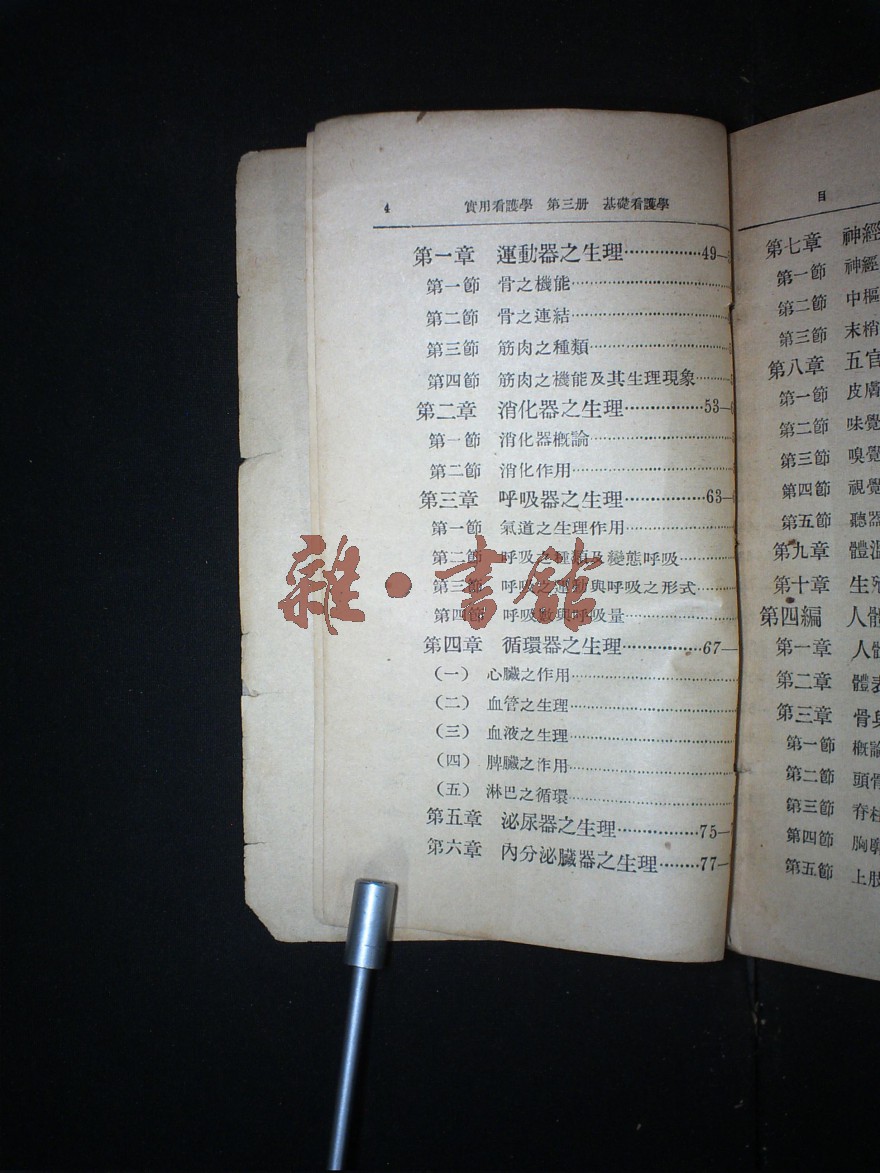 4 實用看護學 第三册 基礎看護學
第一章 運動器之生理……………49—
第一節 骨之機能
第二節 骨之連結
第三節 筋肉之種類
第四節 筋肉之機能及其生理現象
第二章 消化器之生理……………53—
第一節 消化器概論
第二節 消化作用
第三章 呼吸器之生理……………63—
第一節 氣道之生理作用
第二節 呼吸之種類及變態呼吸
第三節 呼吸之運動與呼吸之形式
第四節 呼吸數與呼吸量
第四章 循環器之生理……………67—
(一) 心臟之作用
(二) 血管之生理
(三) 血液之生理
(四) 脾臟之作用
(五) 淋巴之循環
第五章 泌尿器之生理……………75—
第六章 內分泌臟器之生理………77—
目
第七章 神經
第一節 神經
第二節 中樞
第三節 末梢
第八章 五官
第一節 皮膚
第二節 味覺
第三節 嗅覺
第四節 視覺
第五節 聽器
第九章 體溫
第十章 生殖
第四編 人體
第一章 人體
第二章 體表
第三章 骨與
第一節 概論
第二節 頭骨
第三節 脊柱
第四節 胸廓
第五節 上肢
雜·書館